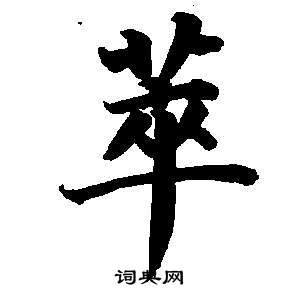 萃
词典网